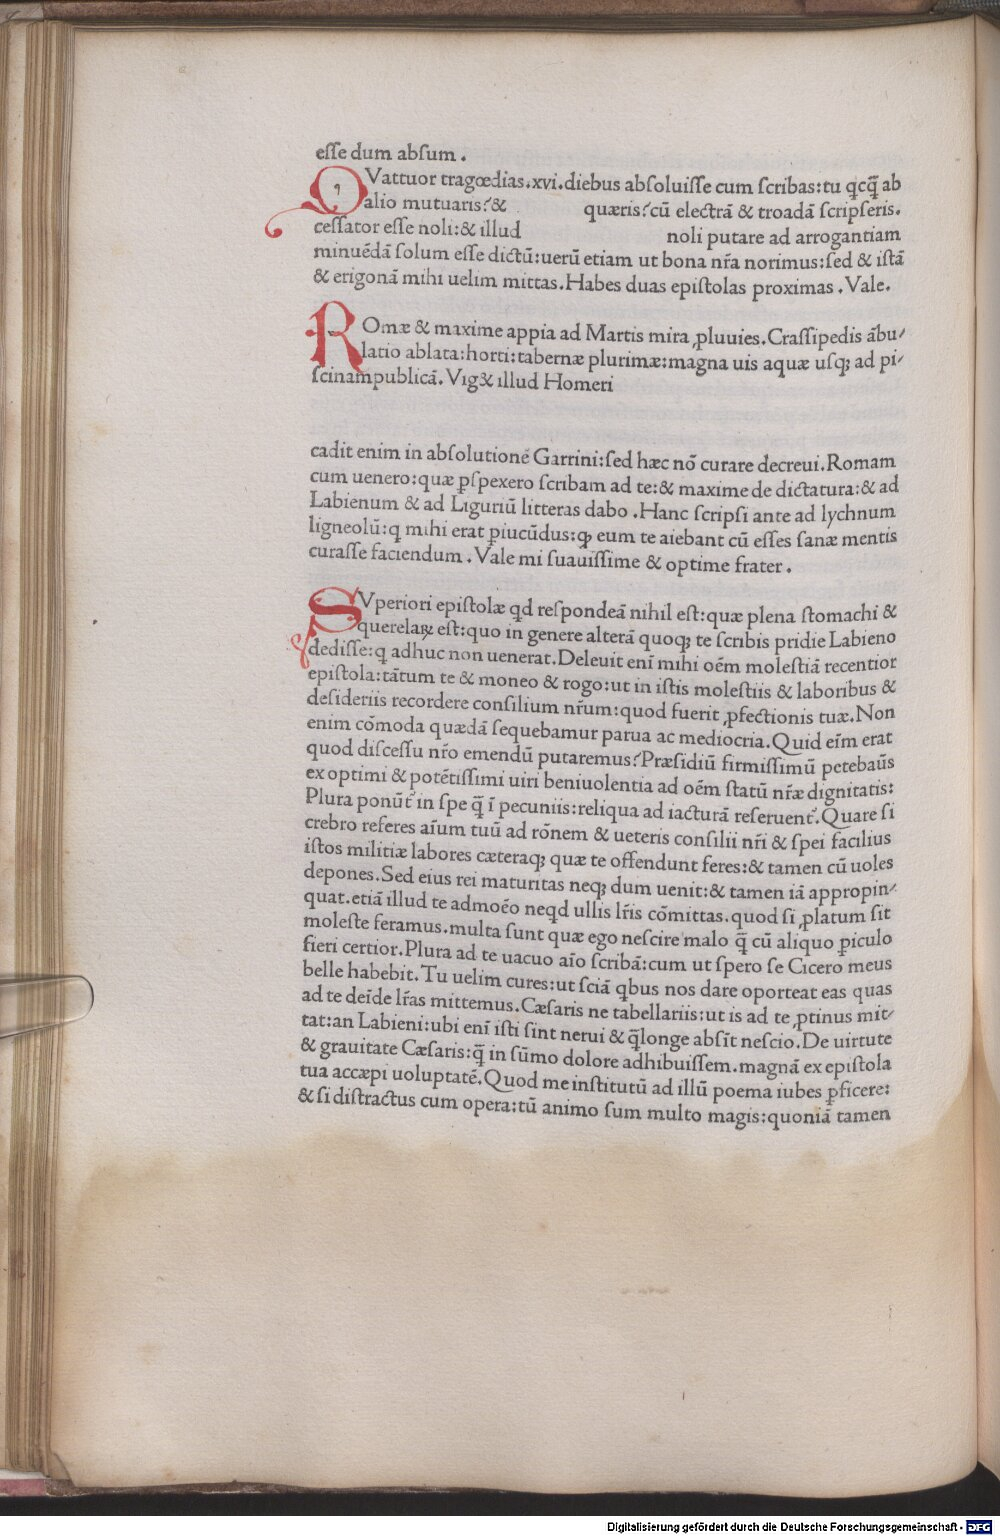 eſſe dum abſum .
QVattuor tragœdias.xvi.diebus abſoluiſſe cum ſcribas:tu qcq̄ ab
alio mutuaris?& quæris?cū electrā & troadā ſcripſeris.
ceſſator eſſe noli:& illud noli putare ad arrogantiam
minuēdā ſolum eſſe dictū:uerū etiam ut bona nr̄a norimus:ſed & iſtā
& erigonā mihi uelim mittas.Habes duas epiſtolas proximas .Vale.
ROmæ & maxime appia ad Martis mira ꝓluuies.Craſſipedis ābu⸗
latio ablata:horti:tabernæ plurimæ:magna uis aquæ uſqꝫ ad pi⸗
ſcinampublicā.Vig& illud Homeri
cadit enim in abſolutionē Garrini:ſed hæc nō curare decreui.Romam
cum uenero:quæ ꝑſpexero ſcribam ad te:& maxime de dictatura:& ad
Labienum & ad Liguriū litteras dabo .Hanc ſcripſi ante ad lychnum
ligneolū:q mihi erat ꝑiucūdus:ꝙ eum te aiebant cū eſſes ſanæ mentis
curaſſe faciendum .Vale mi ſuauiſſime & optime frater .
SVperiori epiſtolæ qd reſpondeā nihil eſt:quæ plena ſtomachi &
querelaꝝ eſt:quo in genere alterā quoqꝫ te ſcribis pridie Labieno
dediſſe:q adhuc non uenerat.Deleuit enī mihi oēm moleſtiā recentior
epiſtola:tātum te & moneo & rogo:ut in iſtis moleſtiis & laboribus &
deſideriis recordere conſilium nr̄um:quod fuerit ꝓfectionis tuæ.Non
enim cōmoda quædā ſequebamur parua ac mediocria.Quid eīm erat
quod diſceſſu nr̄o emendū putaremus?Præſidiū firmiſſimū petebaūs
ex optimi & potētiſſimi uiri beniuolentia ad oēm ſtatū nr̄æ dignitatis:
Plura ponūt᷑ in ſpe q̄ ī pecuniis:reliqua ad iacturā reſeruent᷑.Quare ſi
crebro referes aīum tuū ad rōnem & ueteris conſilii nr̄i & ſpei facilius
iſtos militiæ labores cæteraqꝫ quæ te offendunt feres:& tamen cū uoles
depones.Sed eius rei maturitas neqꝫ dum uenit:& tamen iā appropin⸗
quat.etiā illud te admoēo neqd ullis lr̄is cōmittas.quod ſi ꝓlatum ſit
moleſte feramus.multa ſunt quæ ego neſcire malo q̄ cū aliquo ꝑiculo
fieri certior.Plura ad te uacuo aīo ſcribā:cum ut ſpero ſe Cicero meus
belle habebit.Tu uelim cures:ut ſciā qbus nos dare oporteat eas quas
ad te deīde lr̄as mittemus.Cæſaris ne tabellariis:ut is ad te ꝓtinus mit⸗
tat:an Labieni:ubi enī iſti ſint nerui & q̄longe abſīt neſcio.De uirtute
& grauitate Cæſaris:q̄ in ſūmo dolore adhibuiſſem.magnā ex epiſtola
tua accæpi uoluptatē.Quod me inſtitutū ad illū poema iubes ꝑficere:
& ſi diſtractus cum opera:tū animo ſum multo magis:quoniā tamen
Digitalisierung gefördert durch die Deutsche Forschungsgemeinschaft - DFG